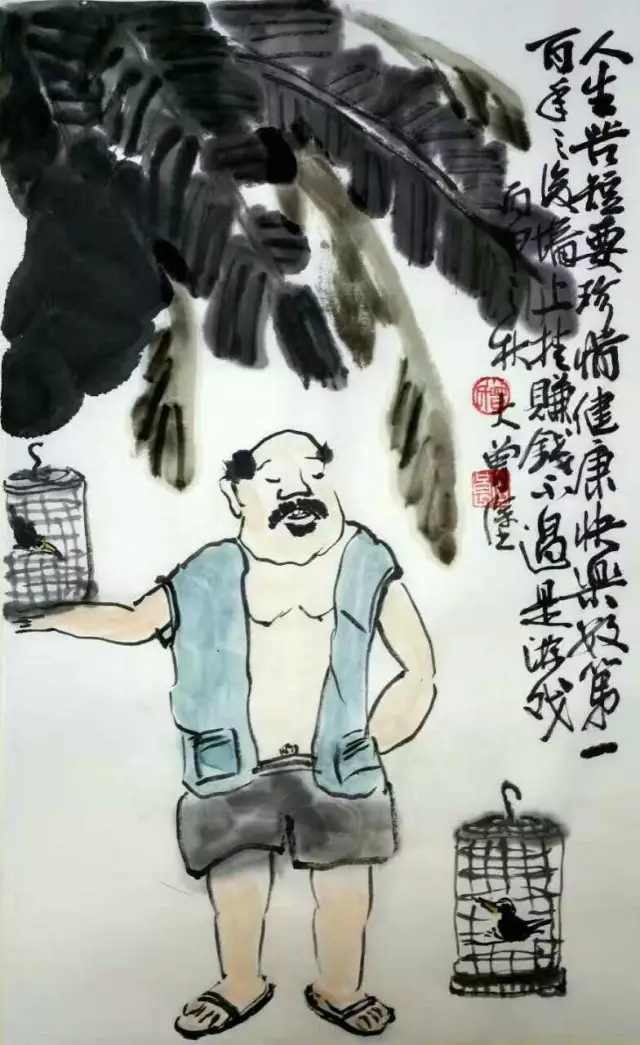 人生苦短要珍惜健康快乐第一
百年之後墙上挂賺錢不過是游戏
丙申之秋大曾